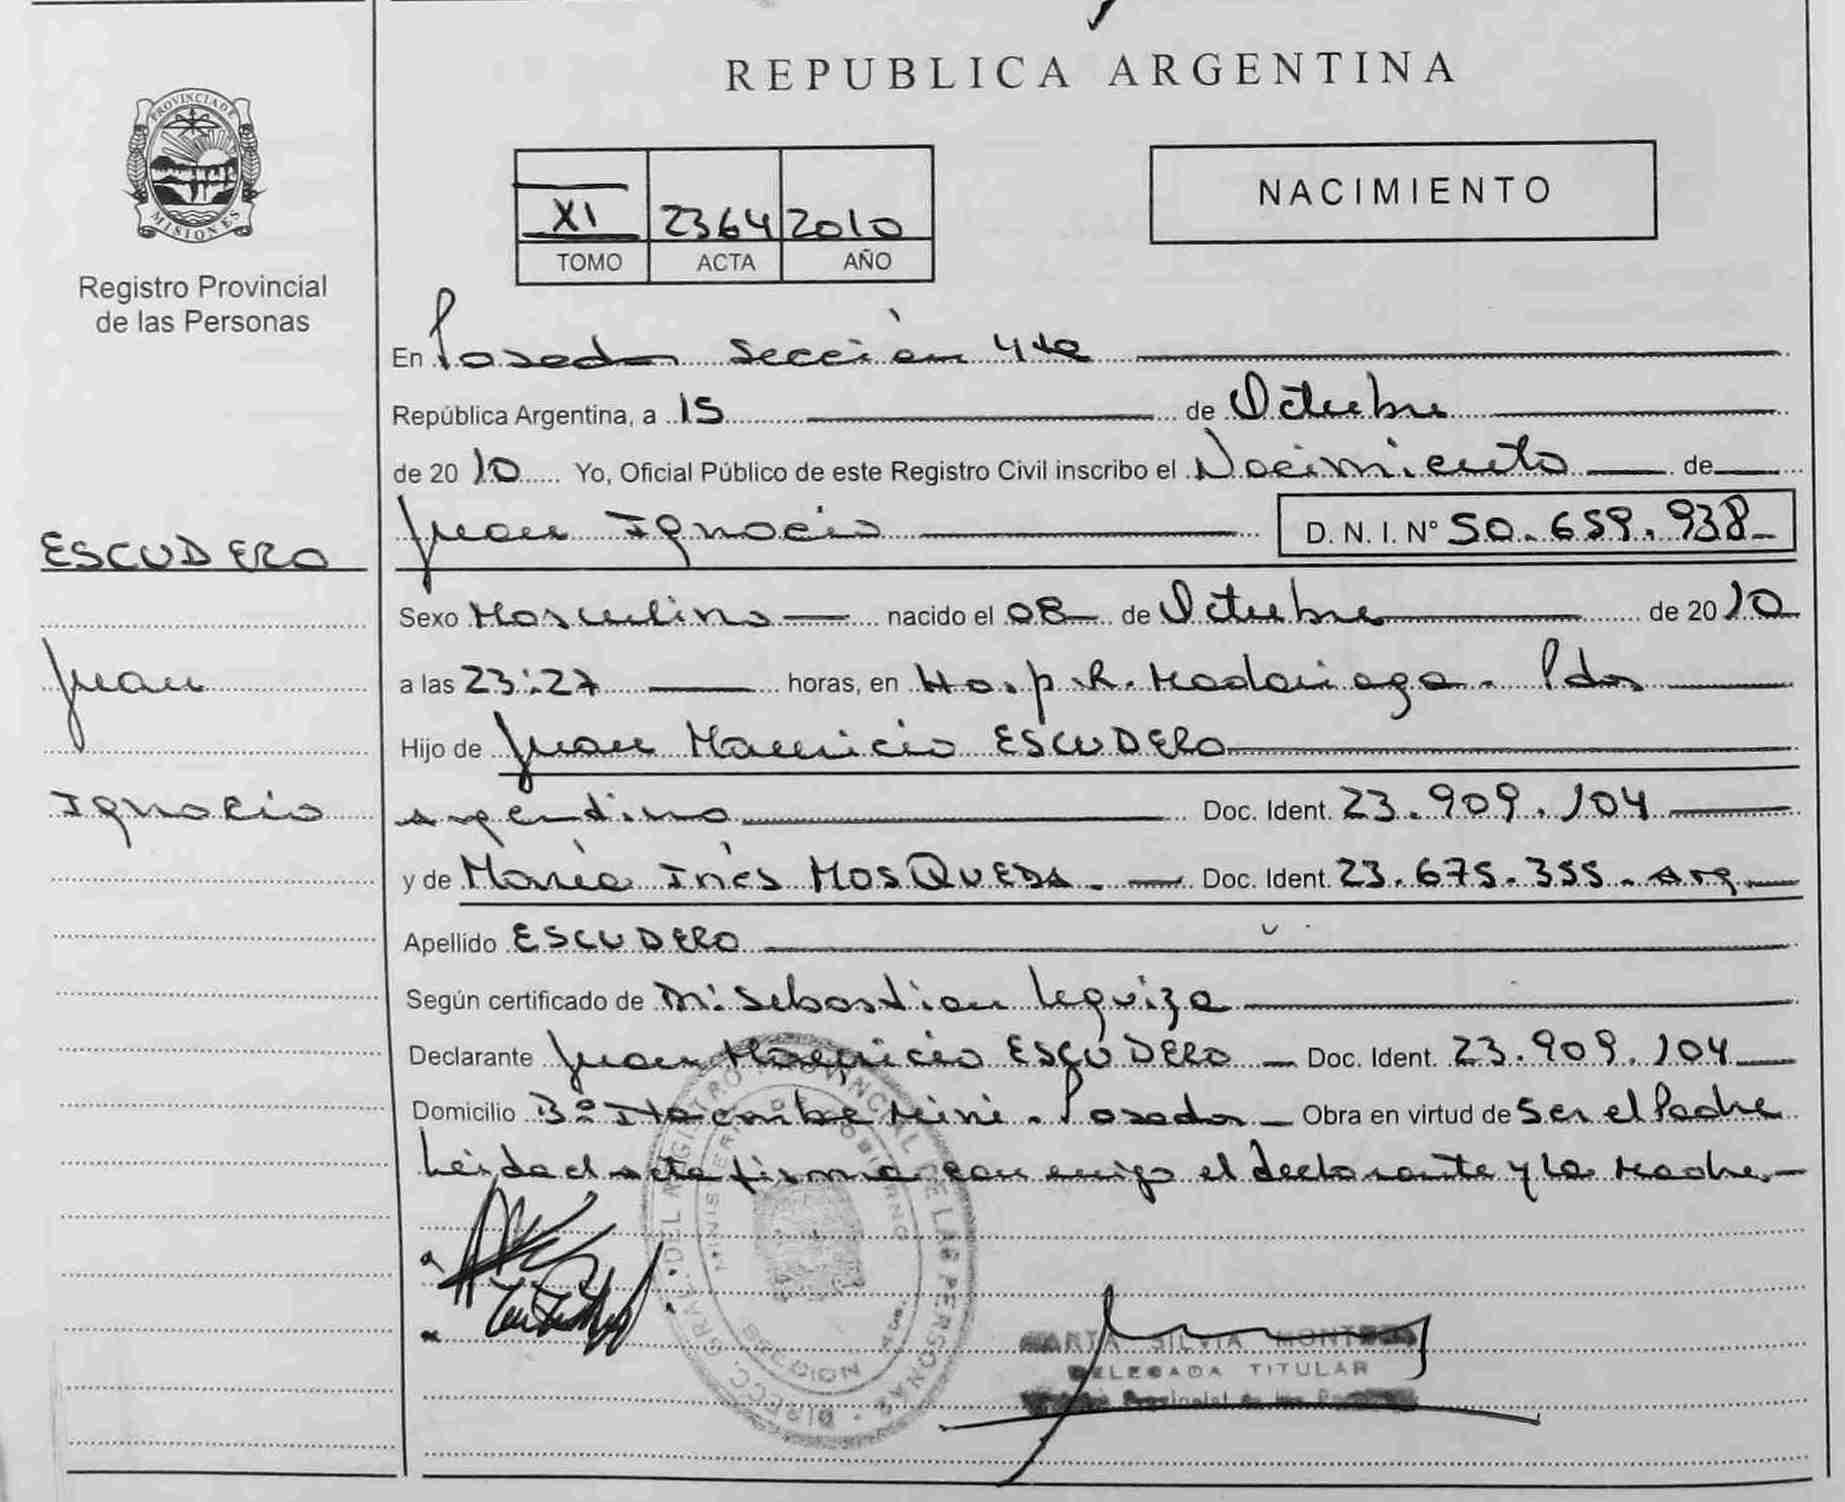 REPUBLICA ARGENTINA
PROVINCIA DE
MISIONES
Registro Provincial
de las Personas
NACIMIENTO
XI 2364 2010
TOMO ACTA AÑO
En Posadas Sección 4ta
República Argentina, a 15 de Octubre
de 2010 Yo, Oficial Público de este Registro Civil inscribo el Nacimiento de
ESCUDERO
Juan Ignacio D. N. I. N° 50.659.938
Sexo Masculino nacido el 08 de Octubre de 2010
Juan
a las 23:27 horas, en Hosp. R. Madariaga - Pdas
Hijo de Juan Mauricio ESCUDERO
Ignacio
Argentino Doc. Ident. 23.909.104
y de María Inés MOSQUEDA. Doc. Ident. 23.675.355 - Arg.
Apellido ESCUDERO
Según certificado de Sebastian Leguiza
Declarante Juan Mauricio ESCUDERO Doc. Ident. 23.909.104
Domicilio Mini - Posadas Obra en virtud de Ser el Padre
Leida el acta firma conmigo el declarante y la Madre.
DIRECC. GRAL. DEL REGISTRO PROVINCIAL DE LAS PERSONAS
MINISTERIO DE GOBIERNO
SECCION 4ta.
MARTA SILVIA
DELEGADA TITULAR
Provincial de las